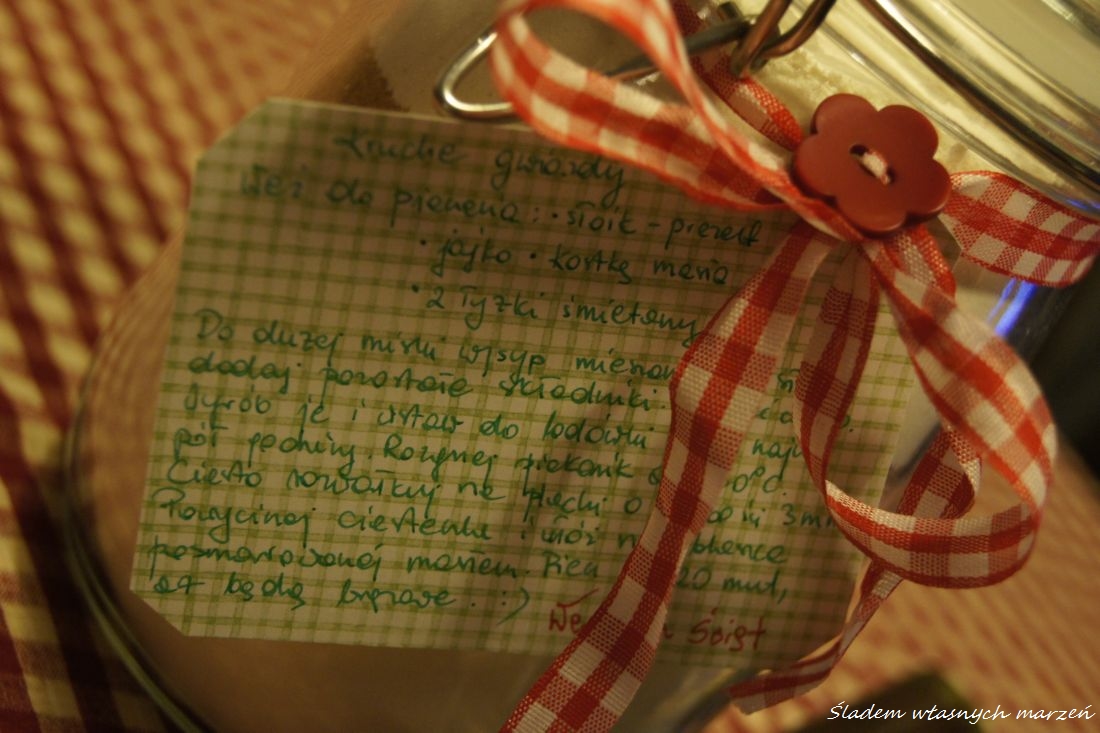 Kruche gwiazdy
Weź do pieczenia: • słoik - prezent
• jajko • kostkę masła
• 2 łyżki śmietany
Do dużej miski wsyp
dodaj pozostałe składniki.
Wyrób je i wstaw do lodówki
pół godziny. Rozgrzej piekarnik
Ciasto rozwałkuj na placki o 3mm
Powycinaj ciasteczka i włóż
posmarowanej masłem. Piecz 20 minut,
aż będą brązowe. :)
Świąt
Śladem własnych marzeń